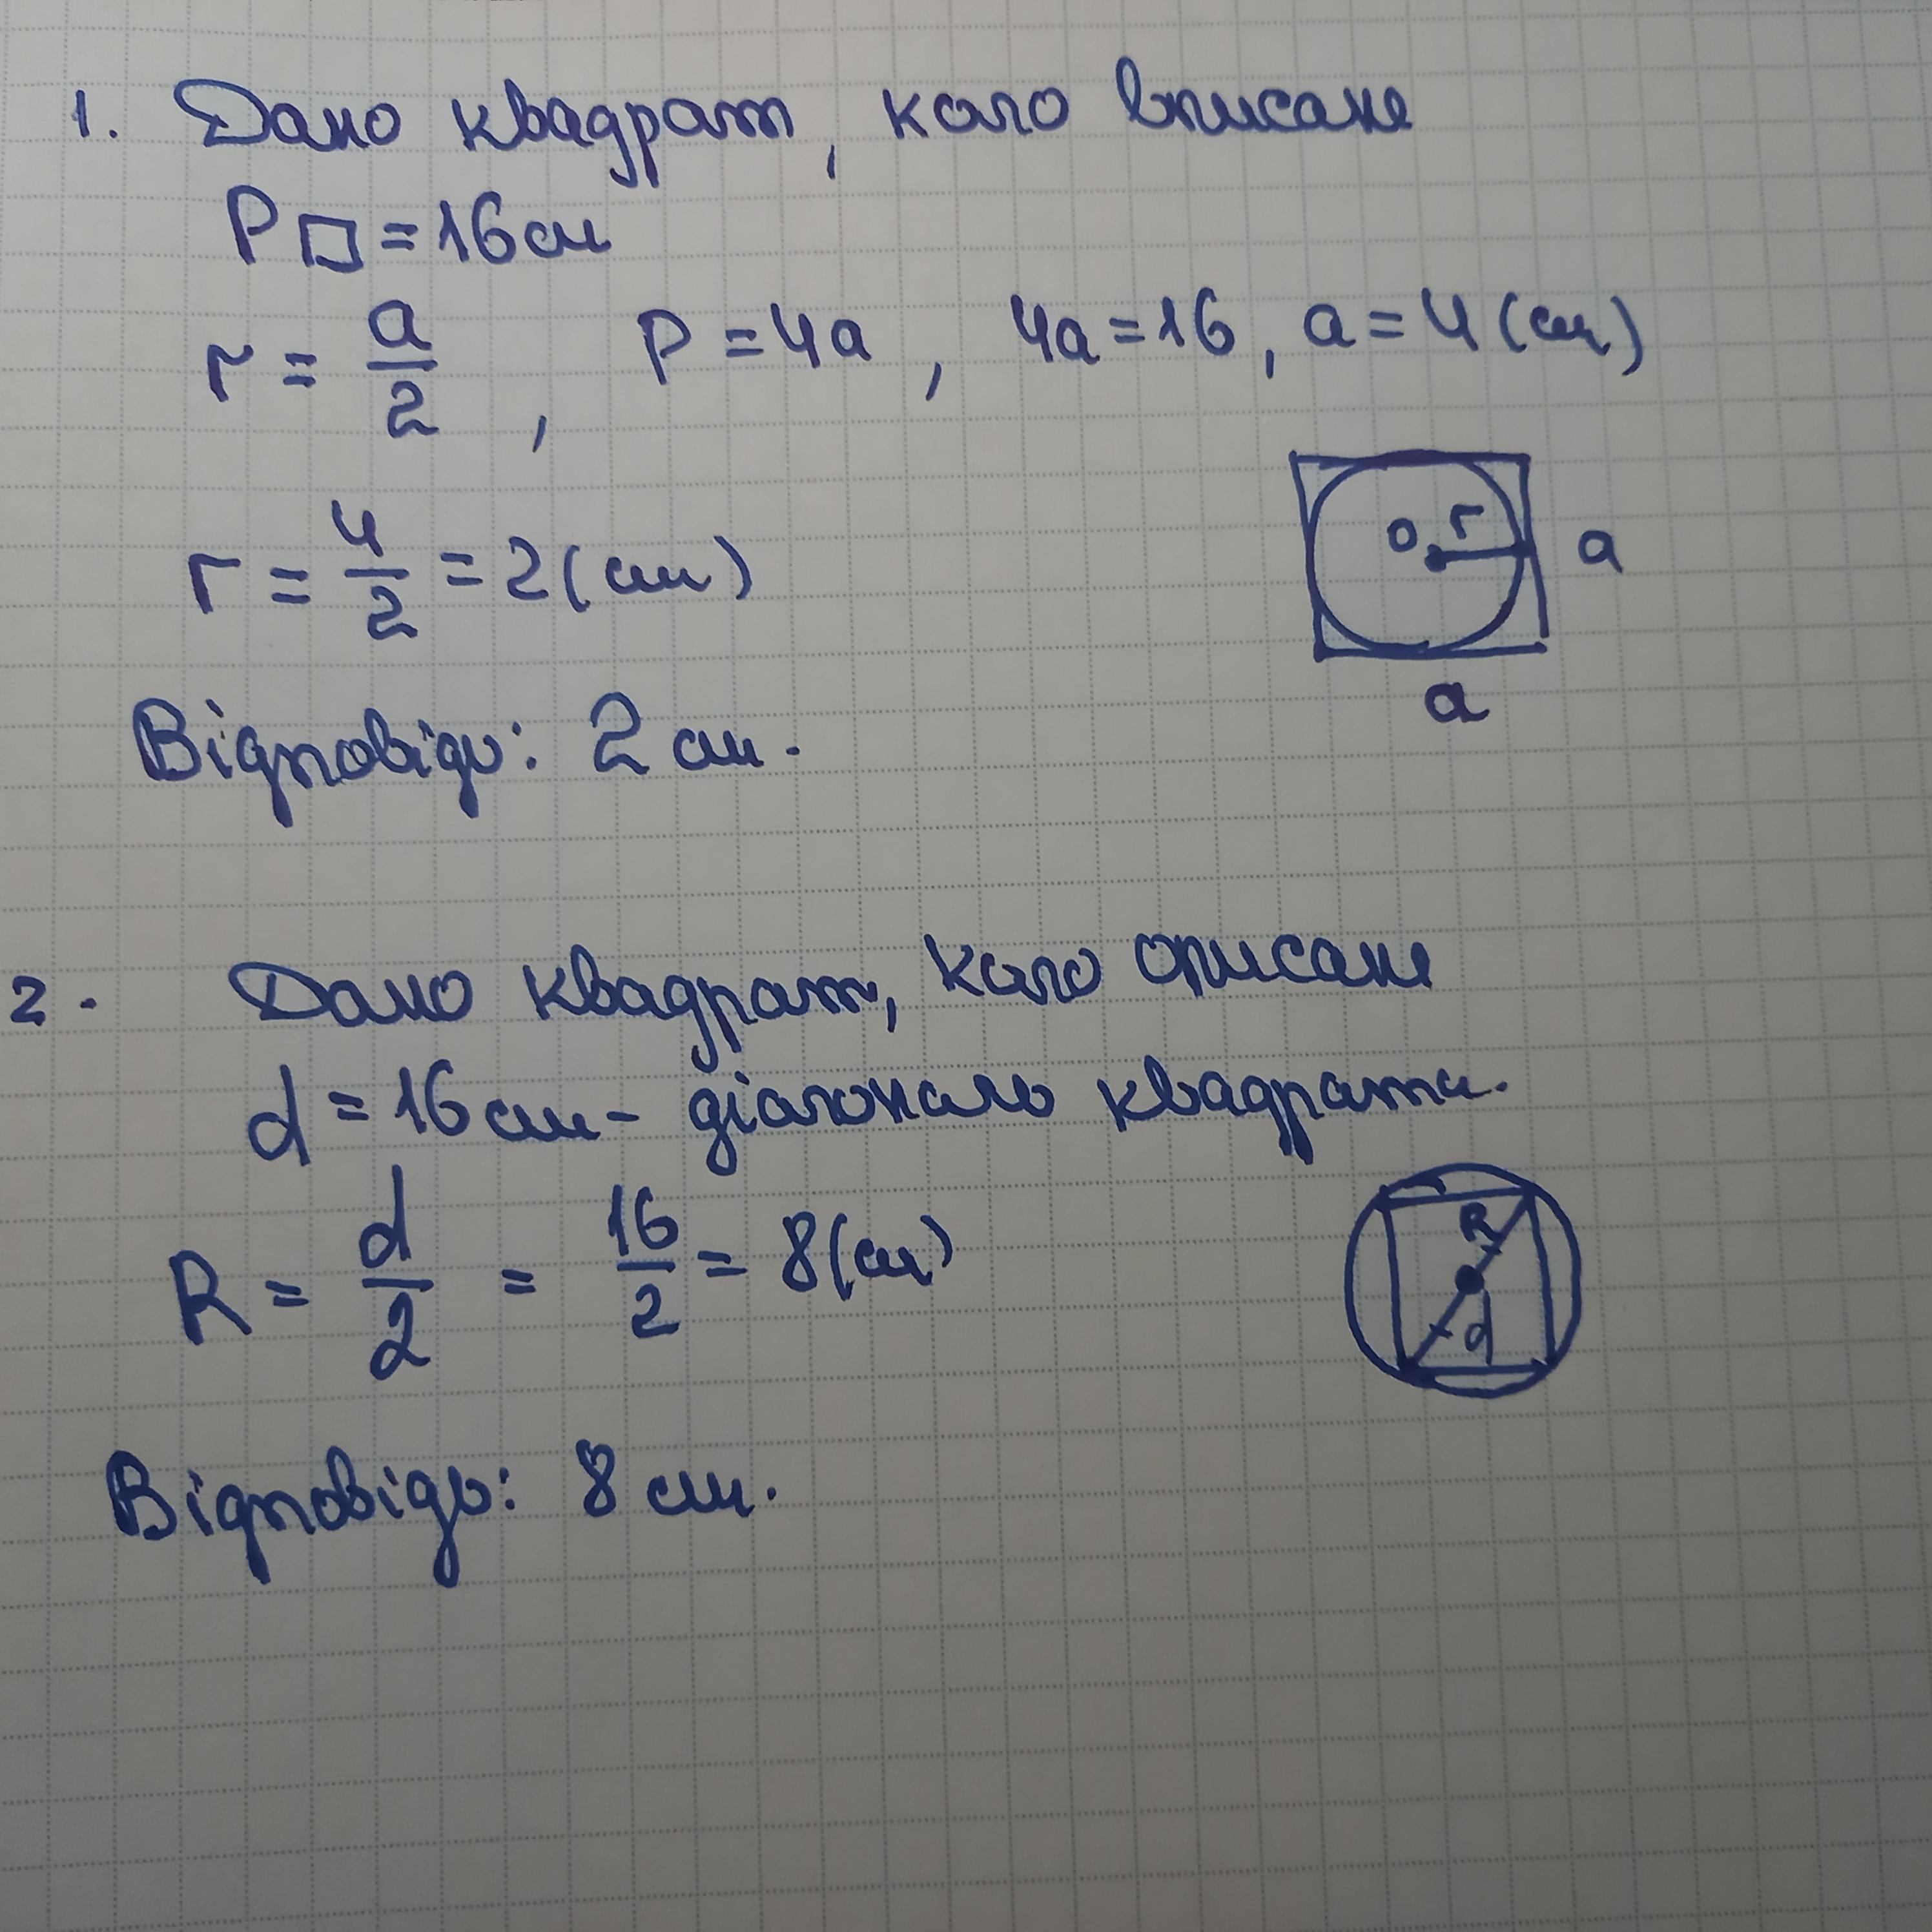 1. Дано квадрат, коло вписане
P□ = 16 см
r = a/2, P = 4a, 4a = 16, a = 4 (см)
r = 4/2 = 2 (см)
O r a
a
Відповідь: 2 см.
2. Дано квадрат, коло описане
d = 16 см - діагональ квадрата.
R = d/2 = 16/2 = 8 (см)
R
d
Відповідь: 8 см.